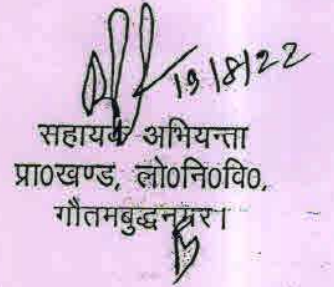 19/8/22
सहायक अभियन्ता
प्रा०खण्ड, लो०नि०वि०,
गौतमबुद्धनगर।